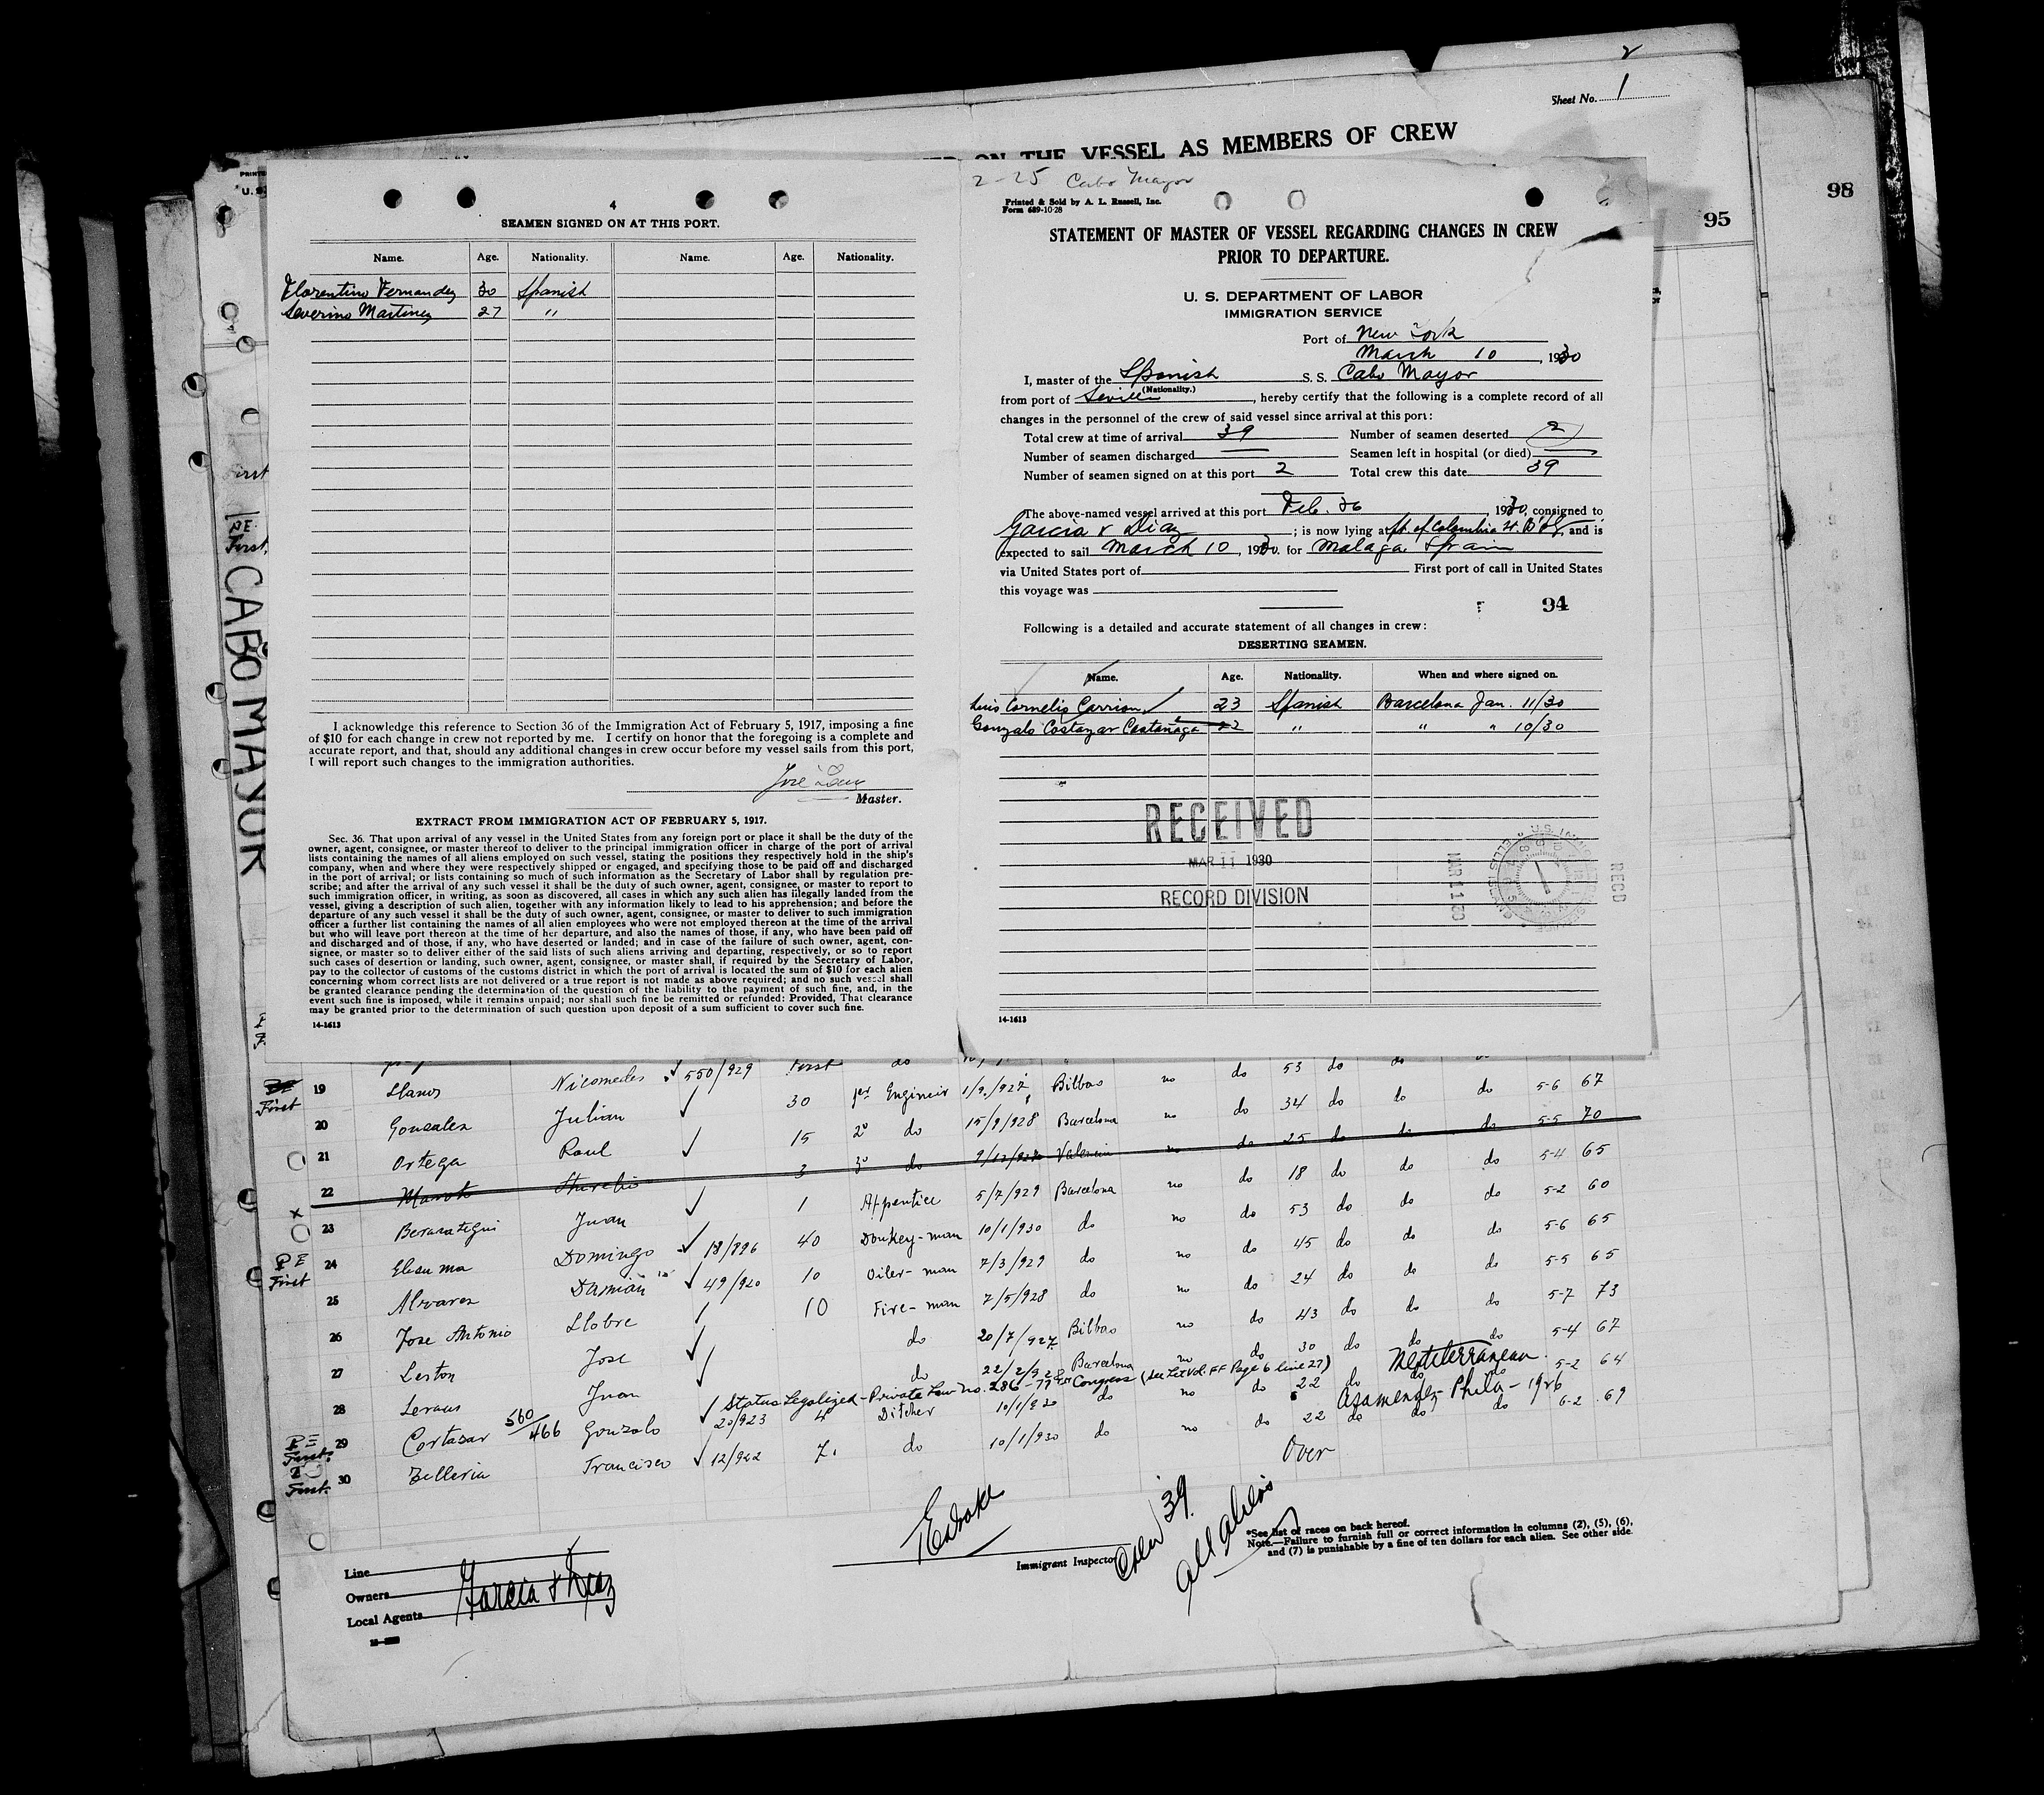 Sheet No. 1
ON THE VESSEL AS MEMBERS OF CREW
95
98
CABO MAYOR
4
SEAMEN SIGNED ON AT THIS PORT.
Name. Age. Nationality. Name. Age. Nationality.
Florentino Fernandez 30 Spanish
Severino Martinez 27 "
I acknowledge this reference to Section 36 of the Immigration Act of February 5, 1917, imposing a fine
of $10 for each change in crew not reported by me. I certify on honor that the foregoing is a complete and
accurate report, and that, should any additional changes in crew occur before my vessel sails from this port,
I will report such changes to the immigration authorities.
Master.
EXTRACT FROM IMMIGRATION ACT OF FEBRUARY 5, 1917.
Sec. 36. That upon arrival of any vessel in the United States from any foreign port or place it shall be the duty of the
owner, agent, consignee, or master thereof to deliver to the principal immigration officer in charge of the port of arrival
lists containing the names of all aliens employed on such vessel, stating the positions they respectively hold in the ship's
company, when and where they were respectively shipped or engaged, and specifying those to be paid off and discharged
in the port of arrival; or lists containing so much of such information as the Secretary of Labor shall by regulation pre-
scribe; and after the arrival of any such vessel it shall be the duty of such owner, agent, consignee, or master to report to
such immigration officer, in writing, as soon as discovered, all cases in which any such alien has illegally landed from the
vessel, giving a description of such alien, together with any information likely to lead to his apprehension; and before the
departure of any such vessel it shall be the duty of such owner, agent, consignee, or master to deliver to such immigration
officer a further list containing the names of all alien employees who were not employed thereon at the time of the arrival
but who will leave port thereon at the time of her departure, and also the names of those, if any, who have been paid off
and discharged and of those, if any, who have deserted or landed; and in case of the failure of such owner, agent, con-
signee, or master so to deliver either of the said lists of such aliens arriving and departing, respectively, or so to report
such cases of desertion or landing, such owner, agent, consignee, or master shall, if required by the Secretary of Labor,
pay to the collector of customs of the customs district in which the port of arrival is located the sum of $10 for each alien
concerning whom correct lists are not delivered or a true report is not made as above required; and no such vessel shall
be granted clearance pending the determination of the question of the liability to the payment of such fine, and, in the
event such fine is imposed, while it remains unpaid; nor shall such fine be remitted or refunded: Provided, That clearance
may be granted prior to the determination of such question upon deposit of a sum sufficient to cover such fine.
14-1613
2-25 Cabo Mayor
Printed & Sold by A. L. Russell, Inc.
Form 689-10-28
STATEMENT OF MASTER OF VESSEL REGARDING CHANGES IN CREW
PRIOR TO DEPARTURE.
U. S. DEPARTMENT OF LABOR
IMMIGRATION SERVICE
Port of New York
March 10, 1930
I, master of the Spanish S. S. Cabo Mayor
(Nationality.)
from port of Sevilla, hereby certify that the following is a complete record of all
changes in the personnel of the crew of said vessel since arrival at this port:
Total crew at time of arrival 39 Number of seamen deserted 2
Number of seamen discharged — Seamen left in hospital (or died) —
Number of seamen signed on at this port 2 Total crew this date 39
The above-named vessel arrived at this port Feb. 26, 1930, consigned to
Garcia & Diaz; is now lying at ft. of Colombia St. B'klyn, and is
expected to sail March 10, 1930. for Malaga Spain
via United States port of First port of call in United States
this voyage was
94
Following is a detailed and accurate statement of all changes in crew:
DESERTING SEAMEN.
Name. Age. Nationality. When and where signed on.
Luis Cornelio Carrion 23 Spanish Barcelona Jan. 11/30
Gonzalo Costazar Castanaga 22 " " " 10/30
RECEIVED
MAR 11 1930
RECORD DIVISION
MAR 11 30
RECD
14-1613
19 Llanos Nicomedes 550/929 30 1er Engineir 1/9/927 Bilbao no do 53 do do do 5-6 67
20 Gonzalez Julian 15 2º do 15/9/928 Barcelona no do 34 do do do 5-5 70
21 Ortega Raul 3 3º do Valencia no do 25 do do do 5-4 65
22 Aurelio 1 Apprentice 5/7/929 Barcelona no do 18 do do do 5-2 60
23 Berarategui Juan 40 Donkey-man 10/1/930 do no do 53 do do do 5-6 65
24 Domingo 18/896 10 Oiler-man 7/3/929 do no do 45 do do do 5-5 65
25 Alvarez Damian 49/920 10 Fire-man 7/5/928 do no do 24 do do do 5-7 73
26 Jose Antonio Llobre do 20/7/927 Bilbao no do 43 do do do 5-4 67
27 Leston Jose do Barcelona no do 30 do do do 5-2 64
Status Legalized - Private Law no. 286 - 77th Congress (See Let Vol. FF Page 6 line 27) Mediterranean
28 Juan Ditcher 10/1/930 do no do 22 do do do 6-2 69
29 Cortazar 560/466 Gonzalo 20/923 4 do 10/1/930 do no do 22 do Phila - 1926
30 Zelleria Francisco 12/922 7.
Over
Line
Owners
Local Agents Garcia & Diaz
Immigrant Inspector
Crew 39
All aliens
*See list of races on back hereof.
Note.—Failure to furnish full or correct information in columns (2), (5), (6),
and (7) is punishable by a fine of ten dollars for each alien. See other side.